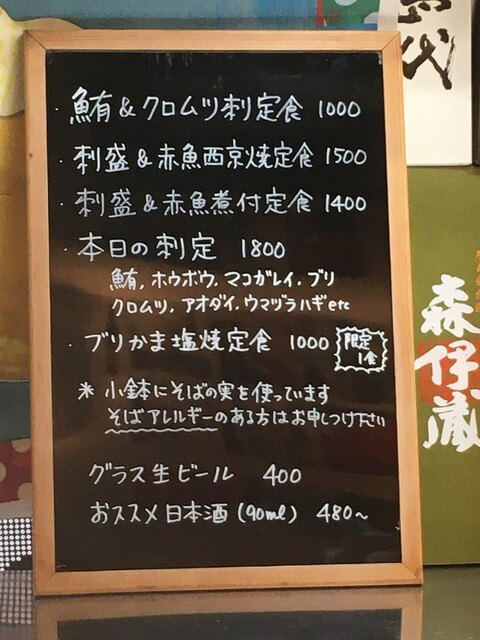 ・鮪&クロムツ刺定食 1000
・刺盛&赤魚西京焼定食 1500
・刺盛&赤魚煮付定食 1400
・本日の刺定 1800
鮪, ホウボウ, マコガレイ, ブリ
クロムツ, アオダイ, ウマヅラハギetc
・ブリかま塩焼定食 1000
限定
1食
* 小鉢にそばの実を使っています
そばアレルギーのある方はお申しつけ下さい
グラス生ビール 400
おススメ日本酒(90ml) 480~
森伊蔵
代